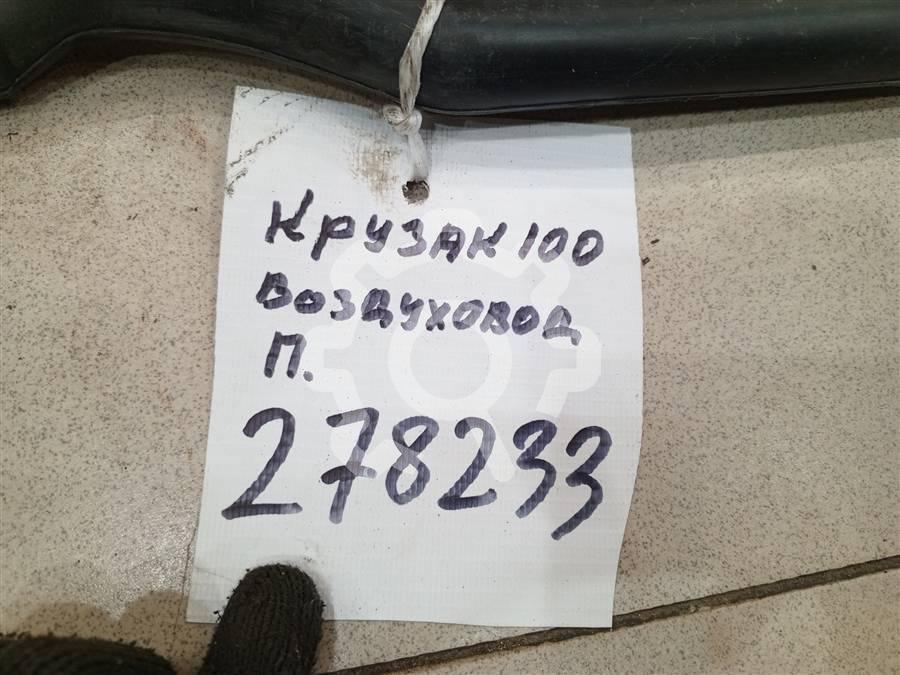 Крузак 100
Воздуховод
П.
278233